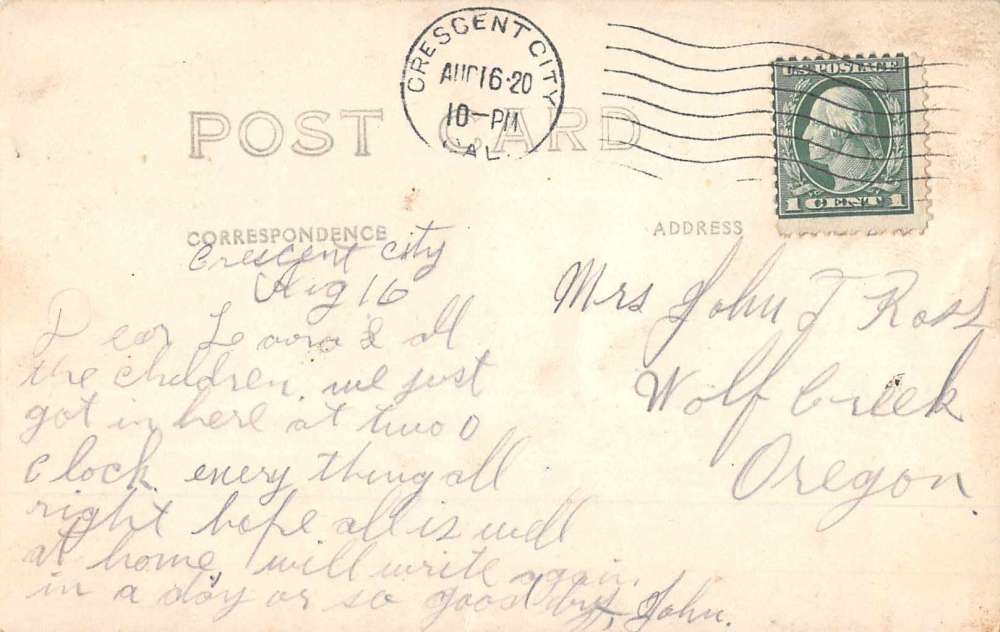 CRESCENT CITY
AUG 16-20
10-PM
CAL.
U.S. POSTAGE
1 CENT 1
POST CARD
CORRESPONDENCE
ADDRESS
Crescent City
Aug 16
Dear Laura & all
the children. we just
got in here at two O
clock. every thing all
right hope all is well
at home will write again
in a day or so good by, John.
Mrs John T Ross
Wolf Creek
Oregon